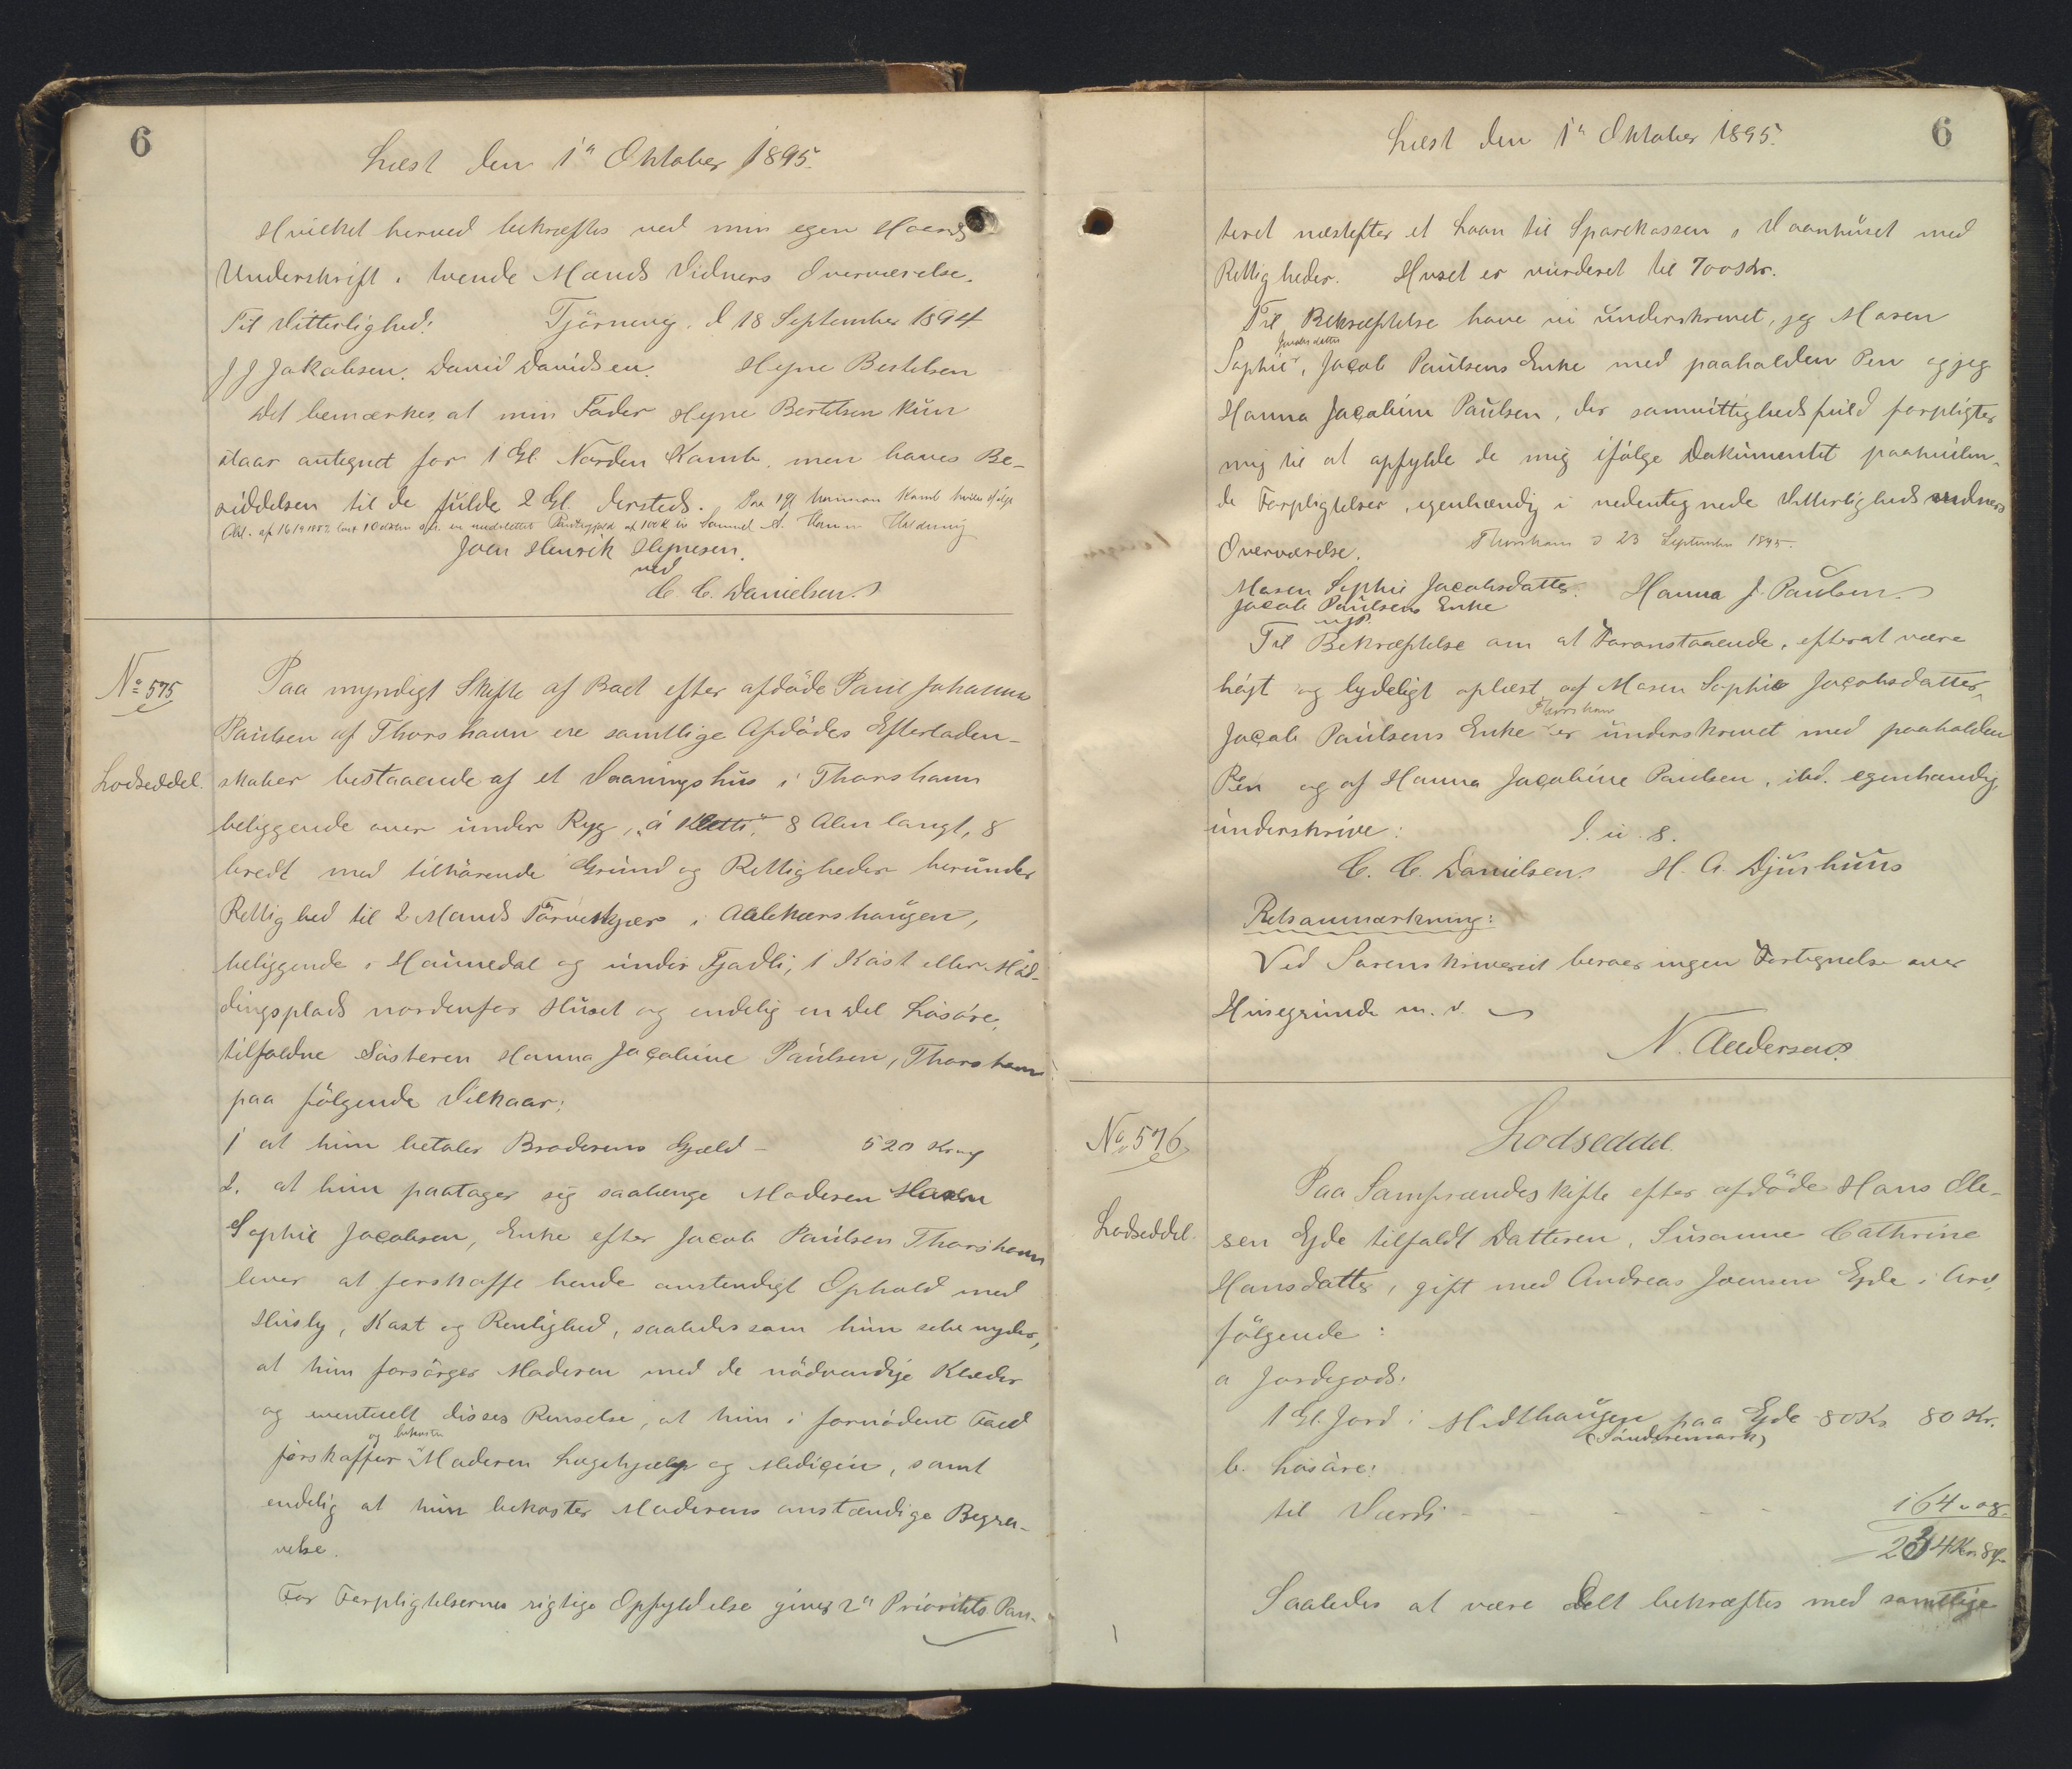 6
Læst den 1" Oktober 1895.
Hvilket herved bekræftes ved min egen Haands
Underskrift i tvende Mænds Vidners Overværelse.
Til Vitterlighed: Tjörnevig, d 18 September 1894
J J Jakobsen. David Davidsen. Heyne Bertelsen
Det bemærkes, at min Fader Heyne Bertelsen kun
staar antegnet for 1 Gl. Norden Kamb, men haves Be-
siddelsen til de fulde 2 Gl. dersteds.
Joen Henrik Heynesen.
ved
C. C. Danielsen.
No 575
Lodseddel.
Paa myndigt Skifte af Boet efter afdöde Paul Johannes
Paulsen af Thorshavn ere samtlige Afdödes Efterladen-
skaber bestaaende af et Vaaningshus i Thorshavn
beliggende oven under Ryg, "á Kletti", 8 Alen langt, 8
bredt med tilhörende Grund og Rettigheder herunder
Rettighed til 2 Mands Törveskjær i
beliggende i og under Tjadli, 1 Kast eller Möd-
dingsplads nordenfor Huset og endelig en Del Lösöre,
tilfaldne Sösteren Hanna Jaçobine Paulsen, Thorshavn
paa fölgende Vilkaar:
1 at hun betaler Broderens Gjæld - 520 Kr
2. at hun paatager sig saalænge Moderen Maren
Sophie Jacobsen, Enke efter Jacob Paulsen Thorshavn
lever at forskaffe hende anstendigt Ophold med
Husly, Kost og Renlighed, saaledes som hun selv nyder,
at hun forsörger Moderen med de nödvendige Klæder
og eventuelt disses Renselse, at hun i fornödent Fald
og bekoster
forskaffer Moderen Lægehjælp og Mediçin, samt
endelig at hun bekoster Moderens anstændige Begra-
velse.
For Forpligtelsernes rigtige Opfyldelse gives 2" Prioritets Pan-
6
Læst den 1" Oktober 1895.
teret næstefter et Laan til Sparekassen i Vaanhuset med
Rettigheder. Huset er vurderet til 700 Kr.
Til Bekræftelse have vi underskrevet, jeg Maren
Sophie, Jaçob Paulsens Enke med paaholden Pen og jeg
Hanna Jaçobine Paulsen, der samvittighedsfuld forpligter
mig til at opfylde de mig ifölge Dokumentet paahvilen-
de Forpligtelser, egenhændig i nedentegnede Vitterligheds vidners
Overværelse. Thorshavn d 23 September 1895.
Maren Sophie Jacobsdatter. Hanna J. Paulsen.
Jacob Paulsens Enke
m. f. P.
Til Bekræftelse om at Foranstaaende, efterat være
höjt og lydeligt oplæst, af Maren Sophie Jaçobsdatter,
Thorshavn
Jaçob Paulsens Enke er underskrevet med paaholden
Pen og af Hanna Jaçobine Paulsen, ibd. egenhændig
underskrive: D. u. s.
C. C. Danielsen. H. A. Djurhuus
Retsanmærkning:
Ved Sorenskriveriet beroer ingen Fortegnelse over
Husegrunde m. v.
N. Andersen
No 576
Lodseddel.
Lodseddel.
Paa Samfrændeskifte efter afdöde Hans Ole-
sen Ejde tilfaldt Datteren, Susanne Cathrine
Hansdatter, gift med Andreas Joensen Ejde i Arv,
fölgende:
a Jordegods:
1 Gl. Jord i Midthaugen paa Ejde 80 Kr 80 Kr.
(Sönderemark)
b. Lösöre:
til Værdi - - - - 164 " 08
244 Kr 8
Saaledes at være delt bekræftes med samtlige